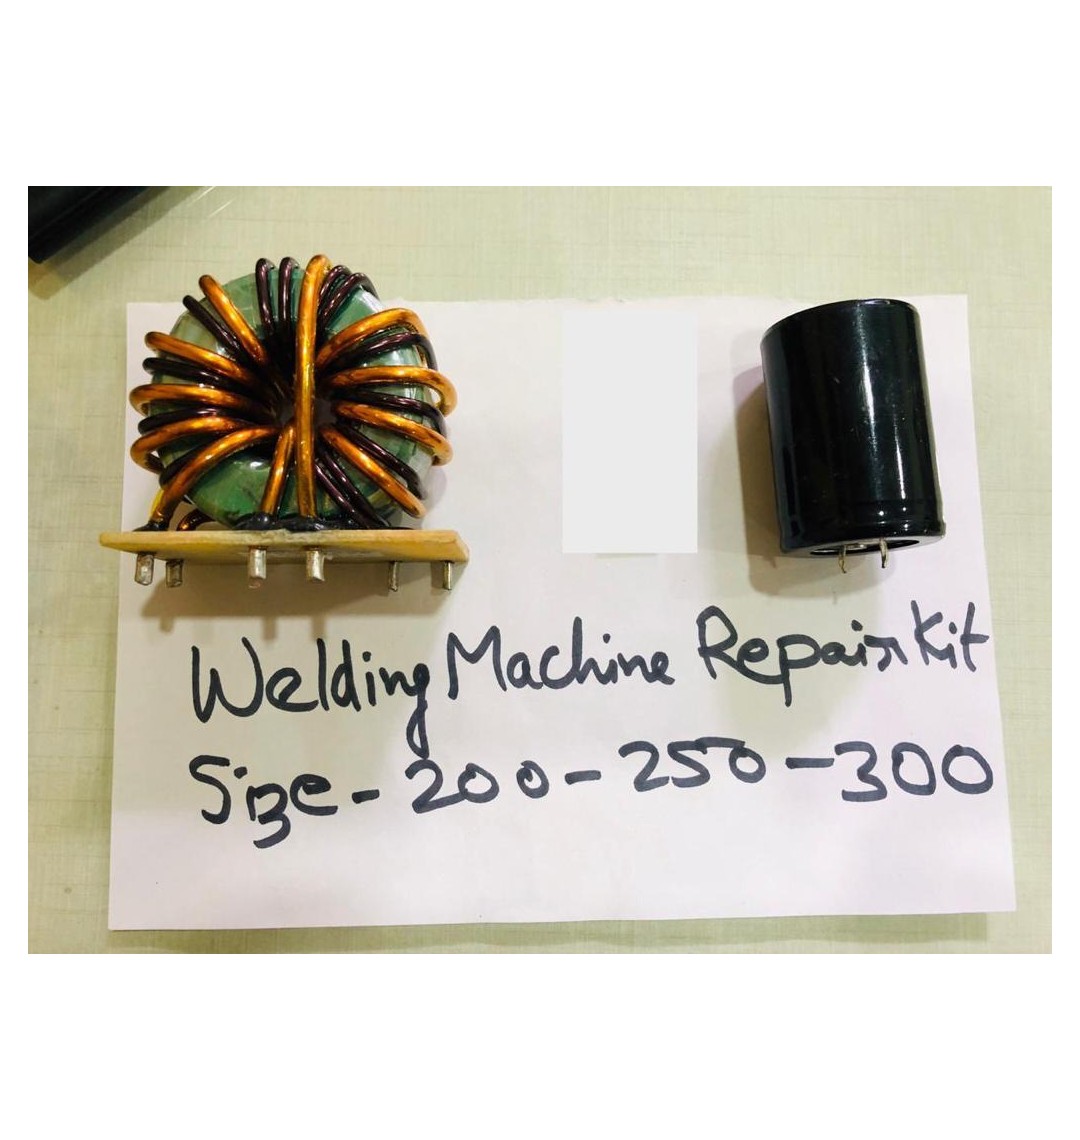 Welding Machine Repair Kit
Size - 200 - 250 - 300